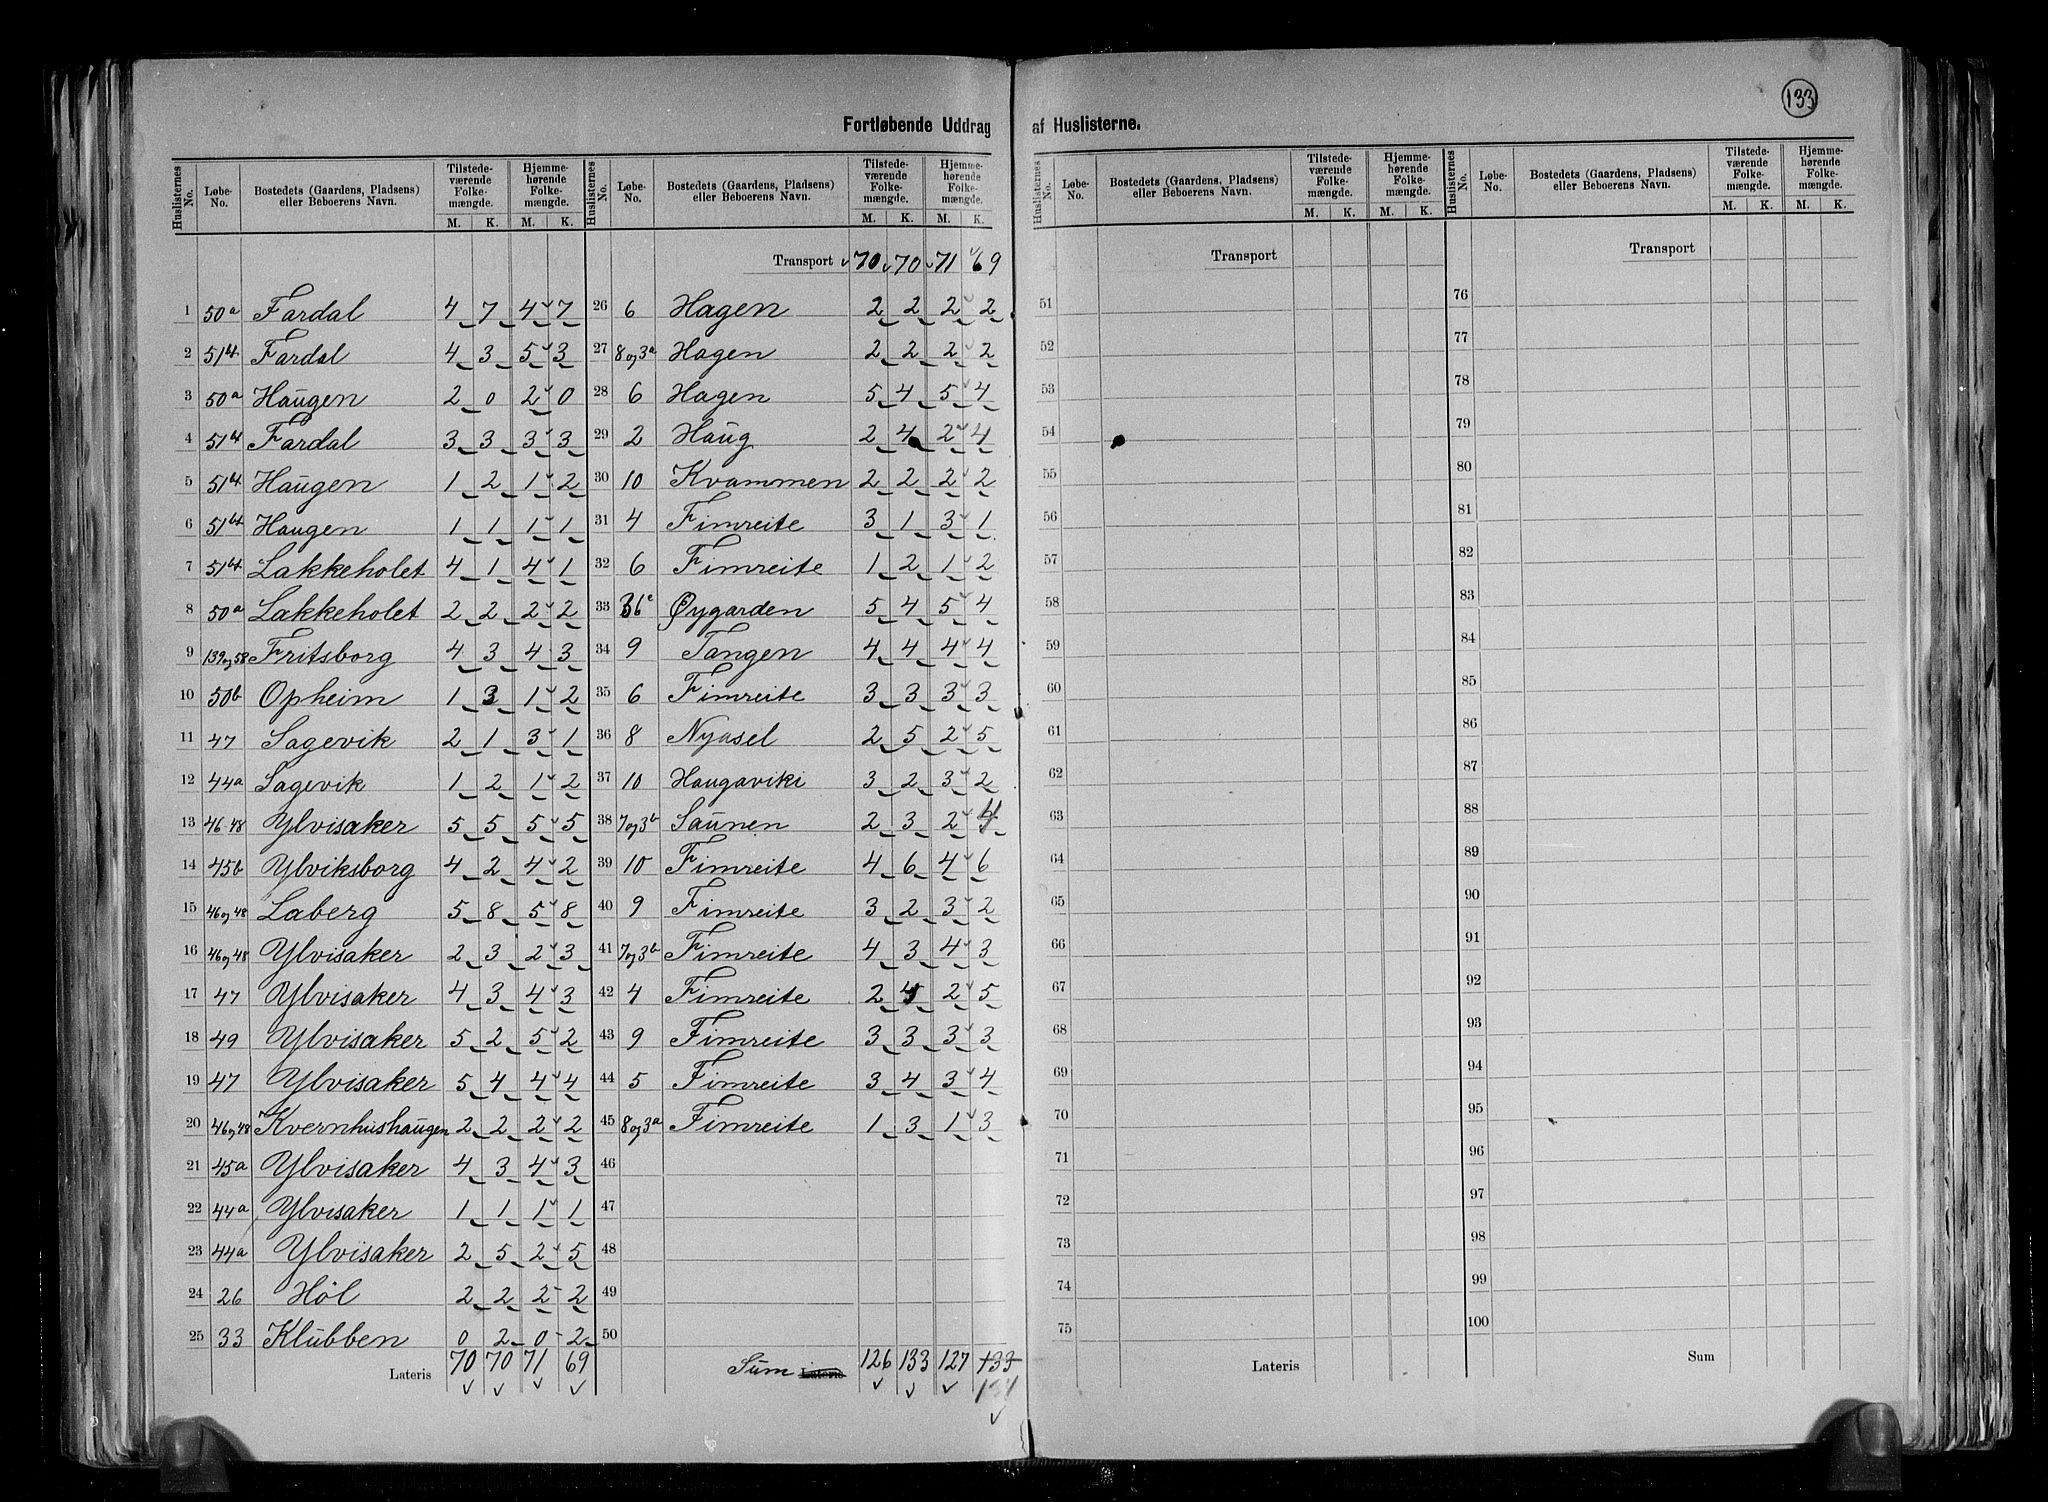 133
Fortløbende Uddrag af Huslisterne.
Huslisternes No. Løbe-No. Bostedets (Gaardens, Pladsens) eller Beboerens Navn. Tilstedeværende Folkemængde. Hjemmehørende Folkemængde.
M. K. M. K.
1 50a Fardal 4 7 4 7
2 51b4 Fardal 4 3 5 3
3 50a Haugen 2 0 2 0
4 51b4 Fardal 3 3 3 3
5 51b4 Haugen 1 2 1 2
6 51b4 Haugen 1 1 1 1
7 51b4 Lakkeholet 4 1 4 1
8 50a Lakkeholet 2 2 2 2
9 139og58 Fritsborg 4 3 4 3
10 50b Opheim 1 3 1 2
11 47 Sagevik 2 1 3 1
12 44a Sagevik 1 2 1 2
13 46-48 Ylvisaker 5 5 5 5
14 45b Ylviksborg 4 2 4 2
15 46og48 Laberg 5 8 5 8
16 46og48 Ylvisaker 2 3 2 3
17 47 Ylvisaker 4 3 4 3
18 49 Ylvisaker 5 2 5 2
19 47 Ylvisaker 5 4 4 4
20 46og48 Kvernhushaugen 2 2 2 2
21 45a Ylvisaker 4 3 4 3
22 44a Ylvisaker 1 1 1 1
23 44a Ylvisaker 2 5 2 5
24 26 Høl 2 2 2 2
25 33 Klubben 0 2 0 2
Lateris 70 70 71 69
Huslisternes No. Løbe-No. Bostedets (Gaardens, Pladsens) eller Beboerens Navn. Tilstedeværende Folkemængde. Hjemmehørende Folkemængde.
M. K. M. K.
Transport 70 70 71 69
26 6 Hagen 2 2 2 2
27 8og3a Hagen 2 2 2 2
28 6 Hagen 5 4 5 4
29 2 Haug 2 4 2 4
30 10 Kvammen 2 2 2 2
31 4 Fimreite 3 1 3 1
32 6 Fimreite 1 2 1 2
33 36c Øygarden 5 4 5 4
34 9 Tangen 4 4 4 4
35 6 Fimreite 3 3 3 3
36 8 Nyasel 2 5 2 5
37 10 Haugaviki 3 2 3 2
38 7og3b Saunen 2 3 2 4
39 10 Fimreite 4 6 4 6
40 9 Fimreite 3 2 3 2
41 7og3b Fimreite 4 3 4 3
42 4 Fimreite 2 2 5
43 9 Fimreite 3 3 3 3
44 5 Fimreite 3 4 3 4
45 8og3a Fimreite 1 3 1 3
46
47
48
49
50
Sum Lateris 126 133 127 133
134
Huslisternes No. Løbe-No. Bostedets (Gaardens, Pladsens) eller Beboerens Navn. Tilstedeværende Folkemængde. Hjemmehørende Folkemængde.
M. K. M. K.
Transport
51
52
53
54
55
56
57
58
59
60
61
62
63
64
65
66
67
68
69
70
71
72
73
74
75
Lateris
Huslisternes No. Løbe-No. Bostedets (Gaardens, Pladsens) eller Beboerens Navn. Tilstedeværende Folkemængde. Hjemmehørende Folkemængde.
M. K. M. K.
Transport
76
77
78
79
80
81
82
83
84
85
86
87
88
89
90
91
92
93
94
95
96
97
98
99
100
Sum